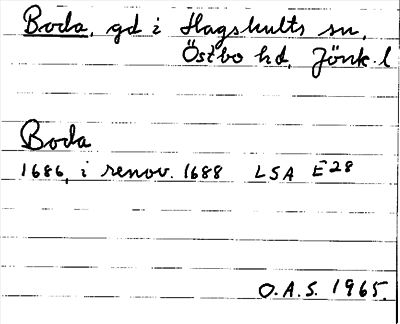 Boda, gd i Hagshults sn,
Östbo hd, Jönk. l
Boda
1686, i renov. 1688 LSA E28
O.A.S. 1965.